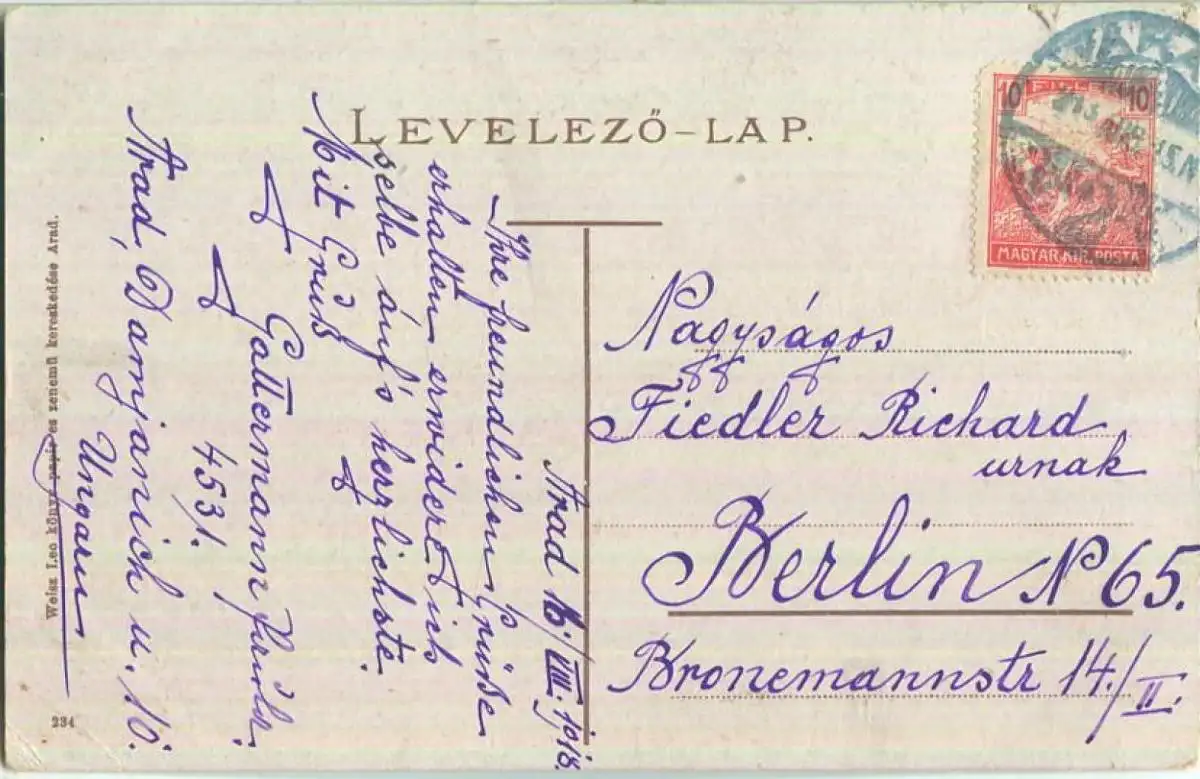 LEVELEZŐ-LAP.
10 FILLÉR 10
MAGYAR KIR. POSTA
Arad 16./VIII. 1918.
Ihre freundlichen Grüße
erhalten erwidert ich
selbe auf's herzlichste.
Mit Gruß
Gattermann
4531.
Arad, Damjanich u. 10.
Ungarn
Nagyságos
Fiedler Richard
urnak
Berlin N 65.
Bronemannstr 14./II.
Weisz Leo könyv papir és zenemű kereskedése Arad.
234